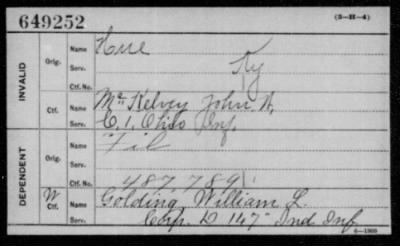 649252 (3-H-4)
INVALID
Orig. Name
Serv. Ky
Ctf. No.
Ctf. Name McKelvey John H.
Serv. C, 1, Ohio Inf.
DEPENDENT
Orig. Name
Serv.
Ctf. No. 487,789
W Ctf. Name Golding, William L.
Serv. Corp. D 147" Ind Inf
6-1903